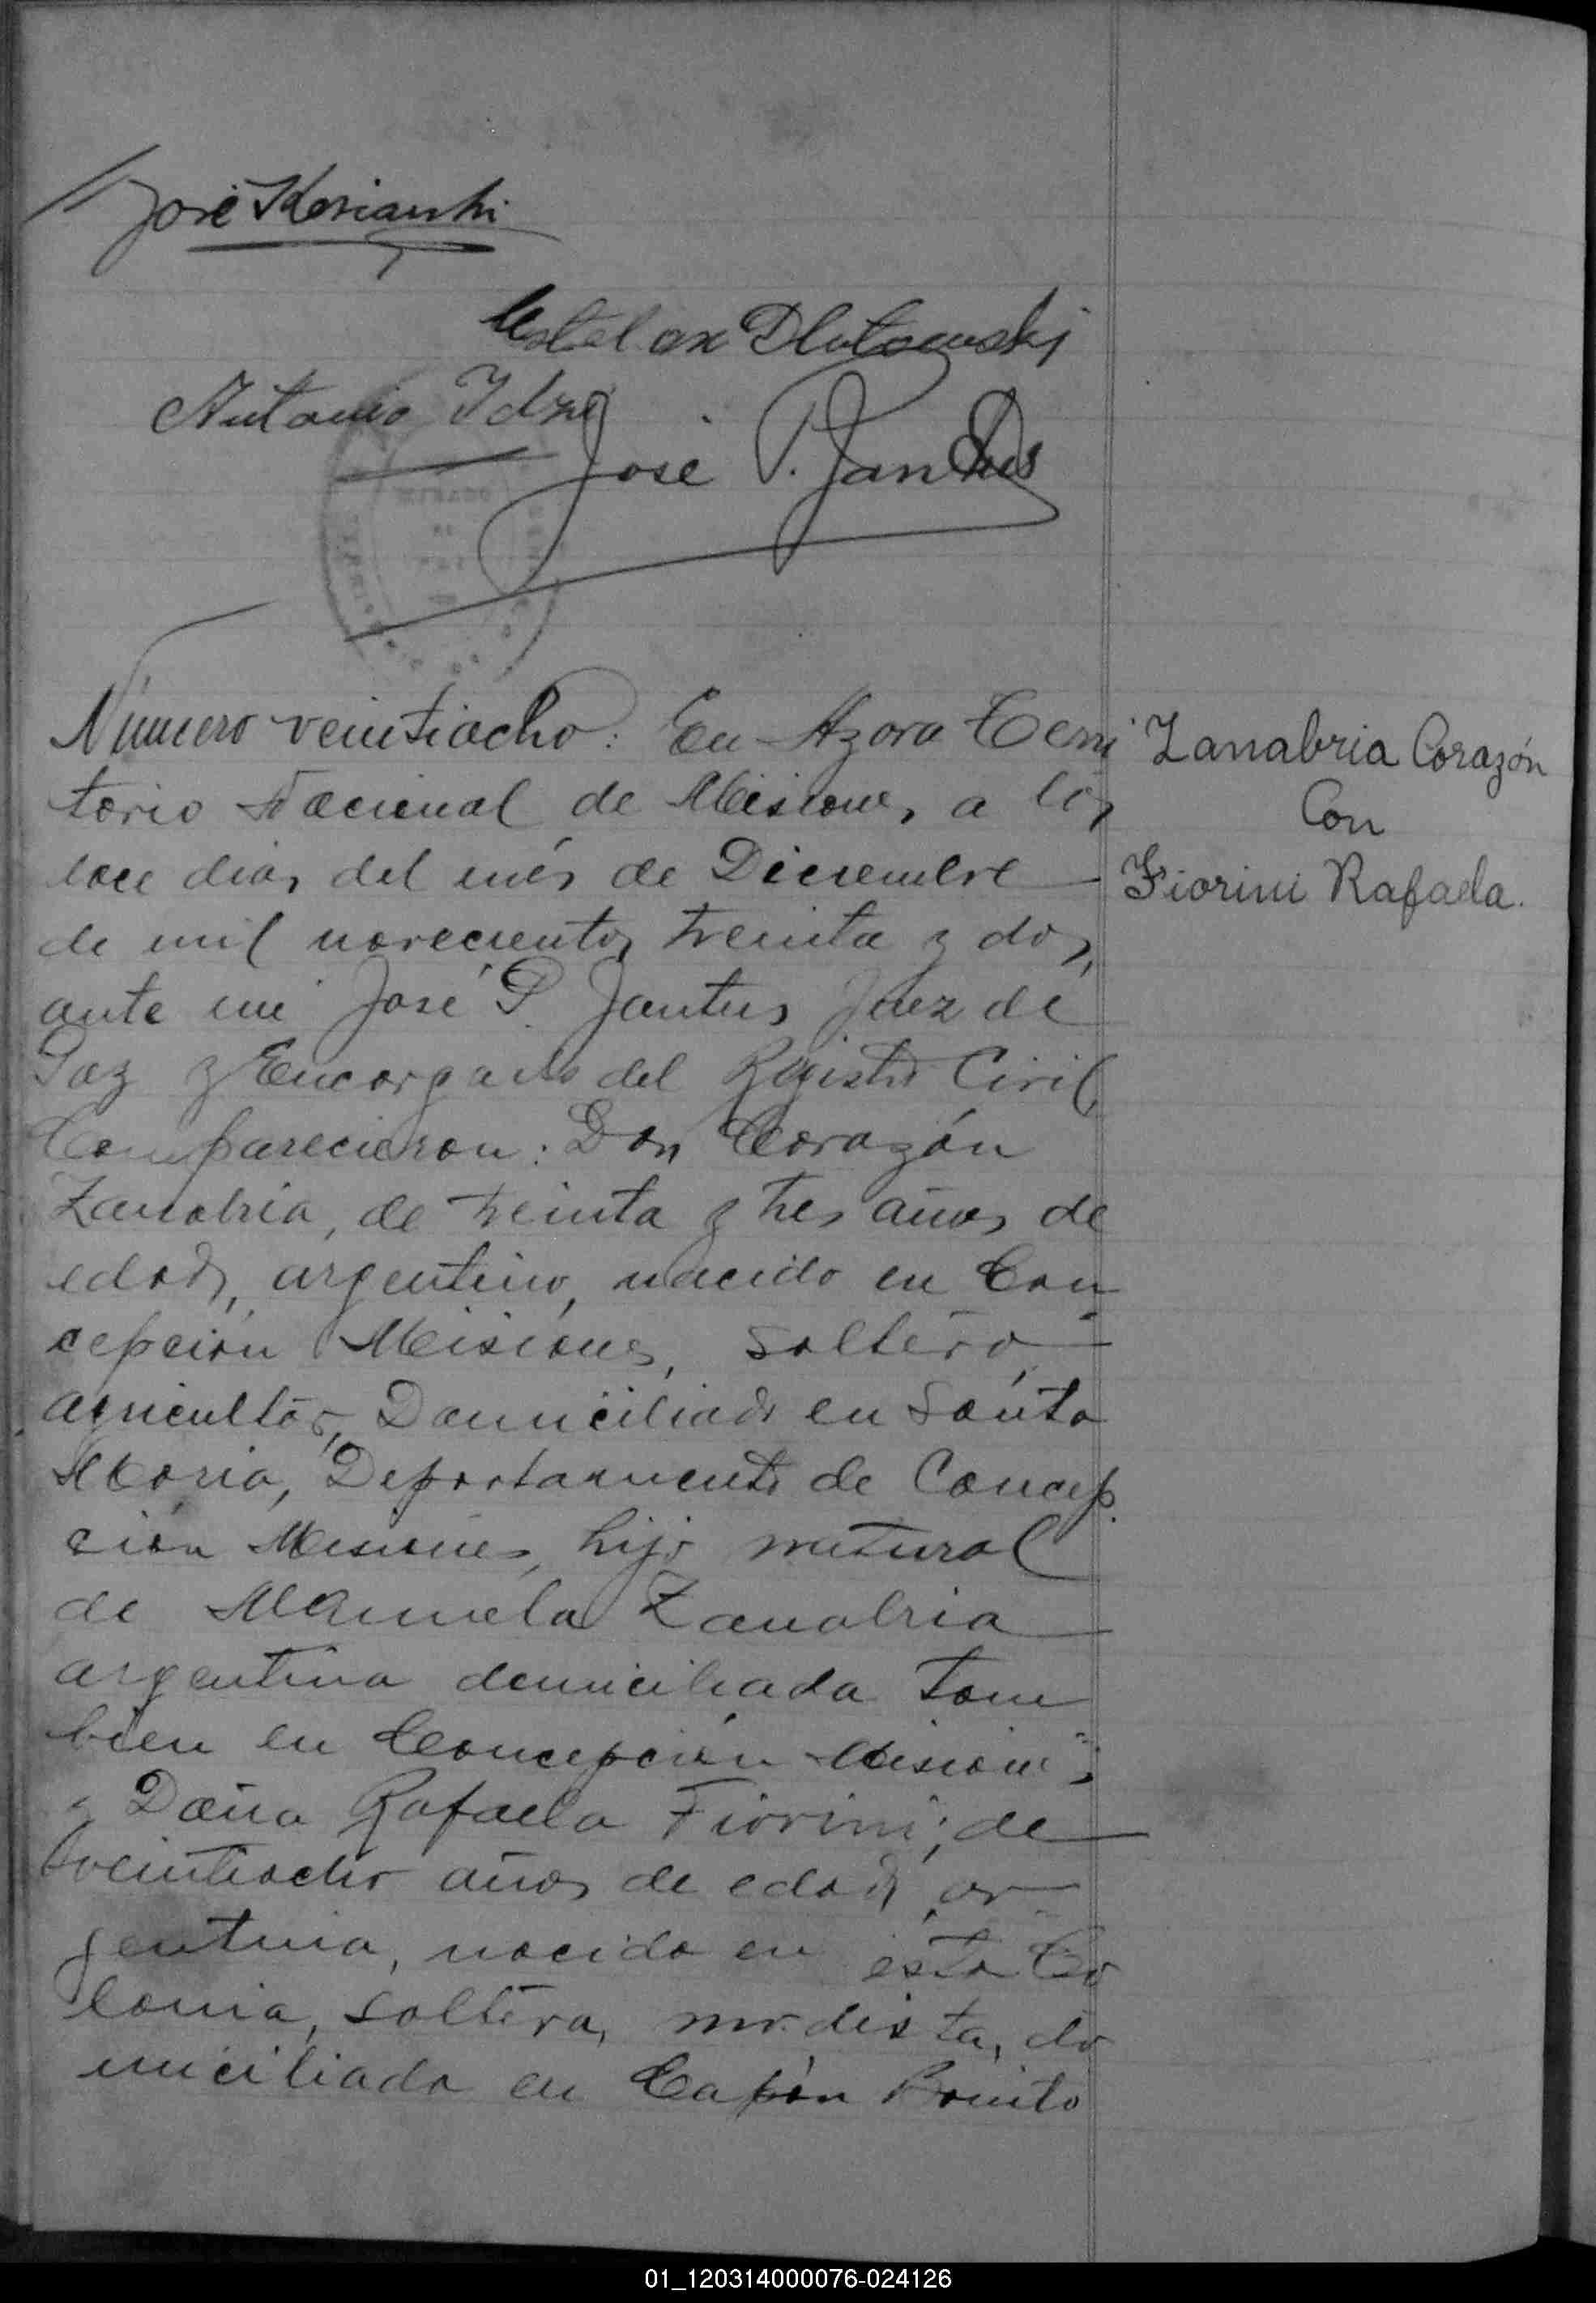 José
Antonio
José P. Jantus
Número veintiocho: En Azara Terri
torio Nacional de Misiones, a los
doce dias del més de Diciembre
de mil novecientos treinta y dos,
ante mi José P. Jantus Juez de
Paz y Encargado del Registro Civil,
Comparecieron: Don Corazón
Zanabria, de treinta y tres años de
edad, argentino, nacido en Con
cepción Misiones, soltero,
agricultor, Domiciliado en Santa
Maria, Departamento de Concep
ción Misiones, hijo natural
de Manuela Zanabria
argentina domiciliada tam
bien en Concepción Misiones;
y Doña Rafaela Fiorini; de
veintiocho años de edad, ar
gentina, nacida en esta Co
lonia, soltera, modista, do
miciliada en Capón Bonito
Zanabria Corazón
Con
Fiorini Rafaela.
01_120314000076-024126